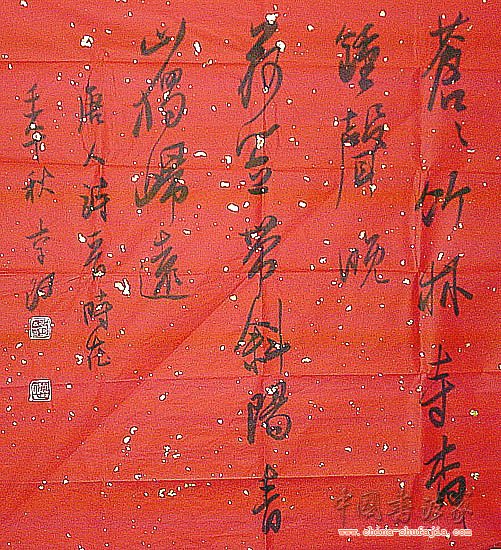 蒼〻竹林寺杳
鍾聲晚
荷笠帶斜陽青
山獨歸遠
唐人詩 時在
壬午秋
中国书法家
www.china-shufajia.com